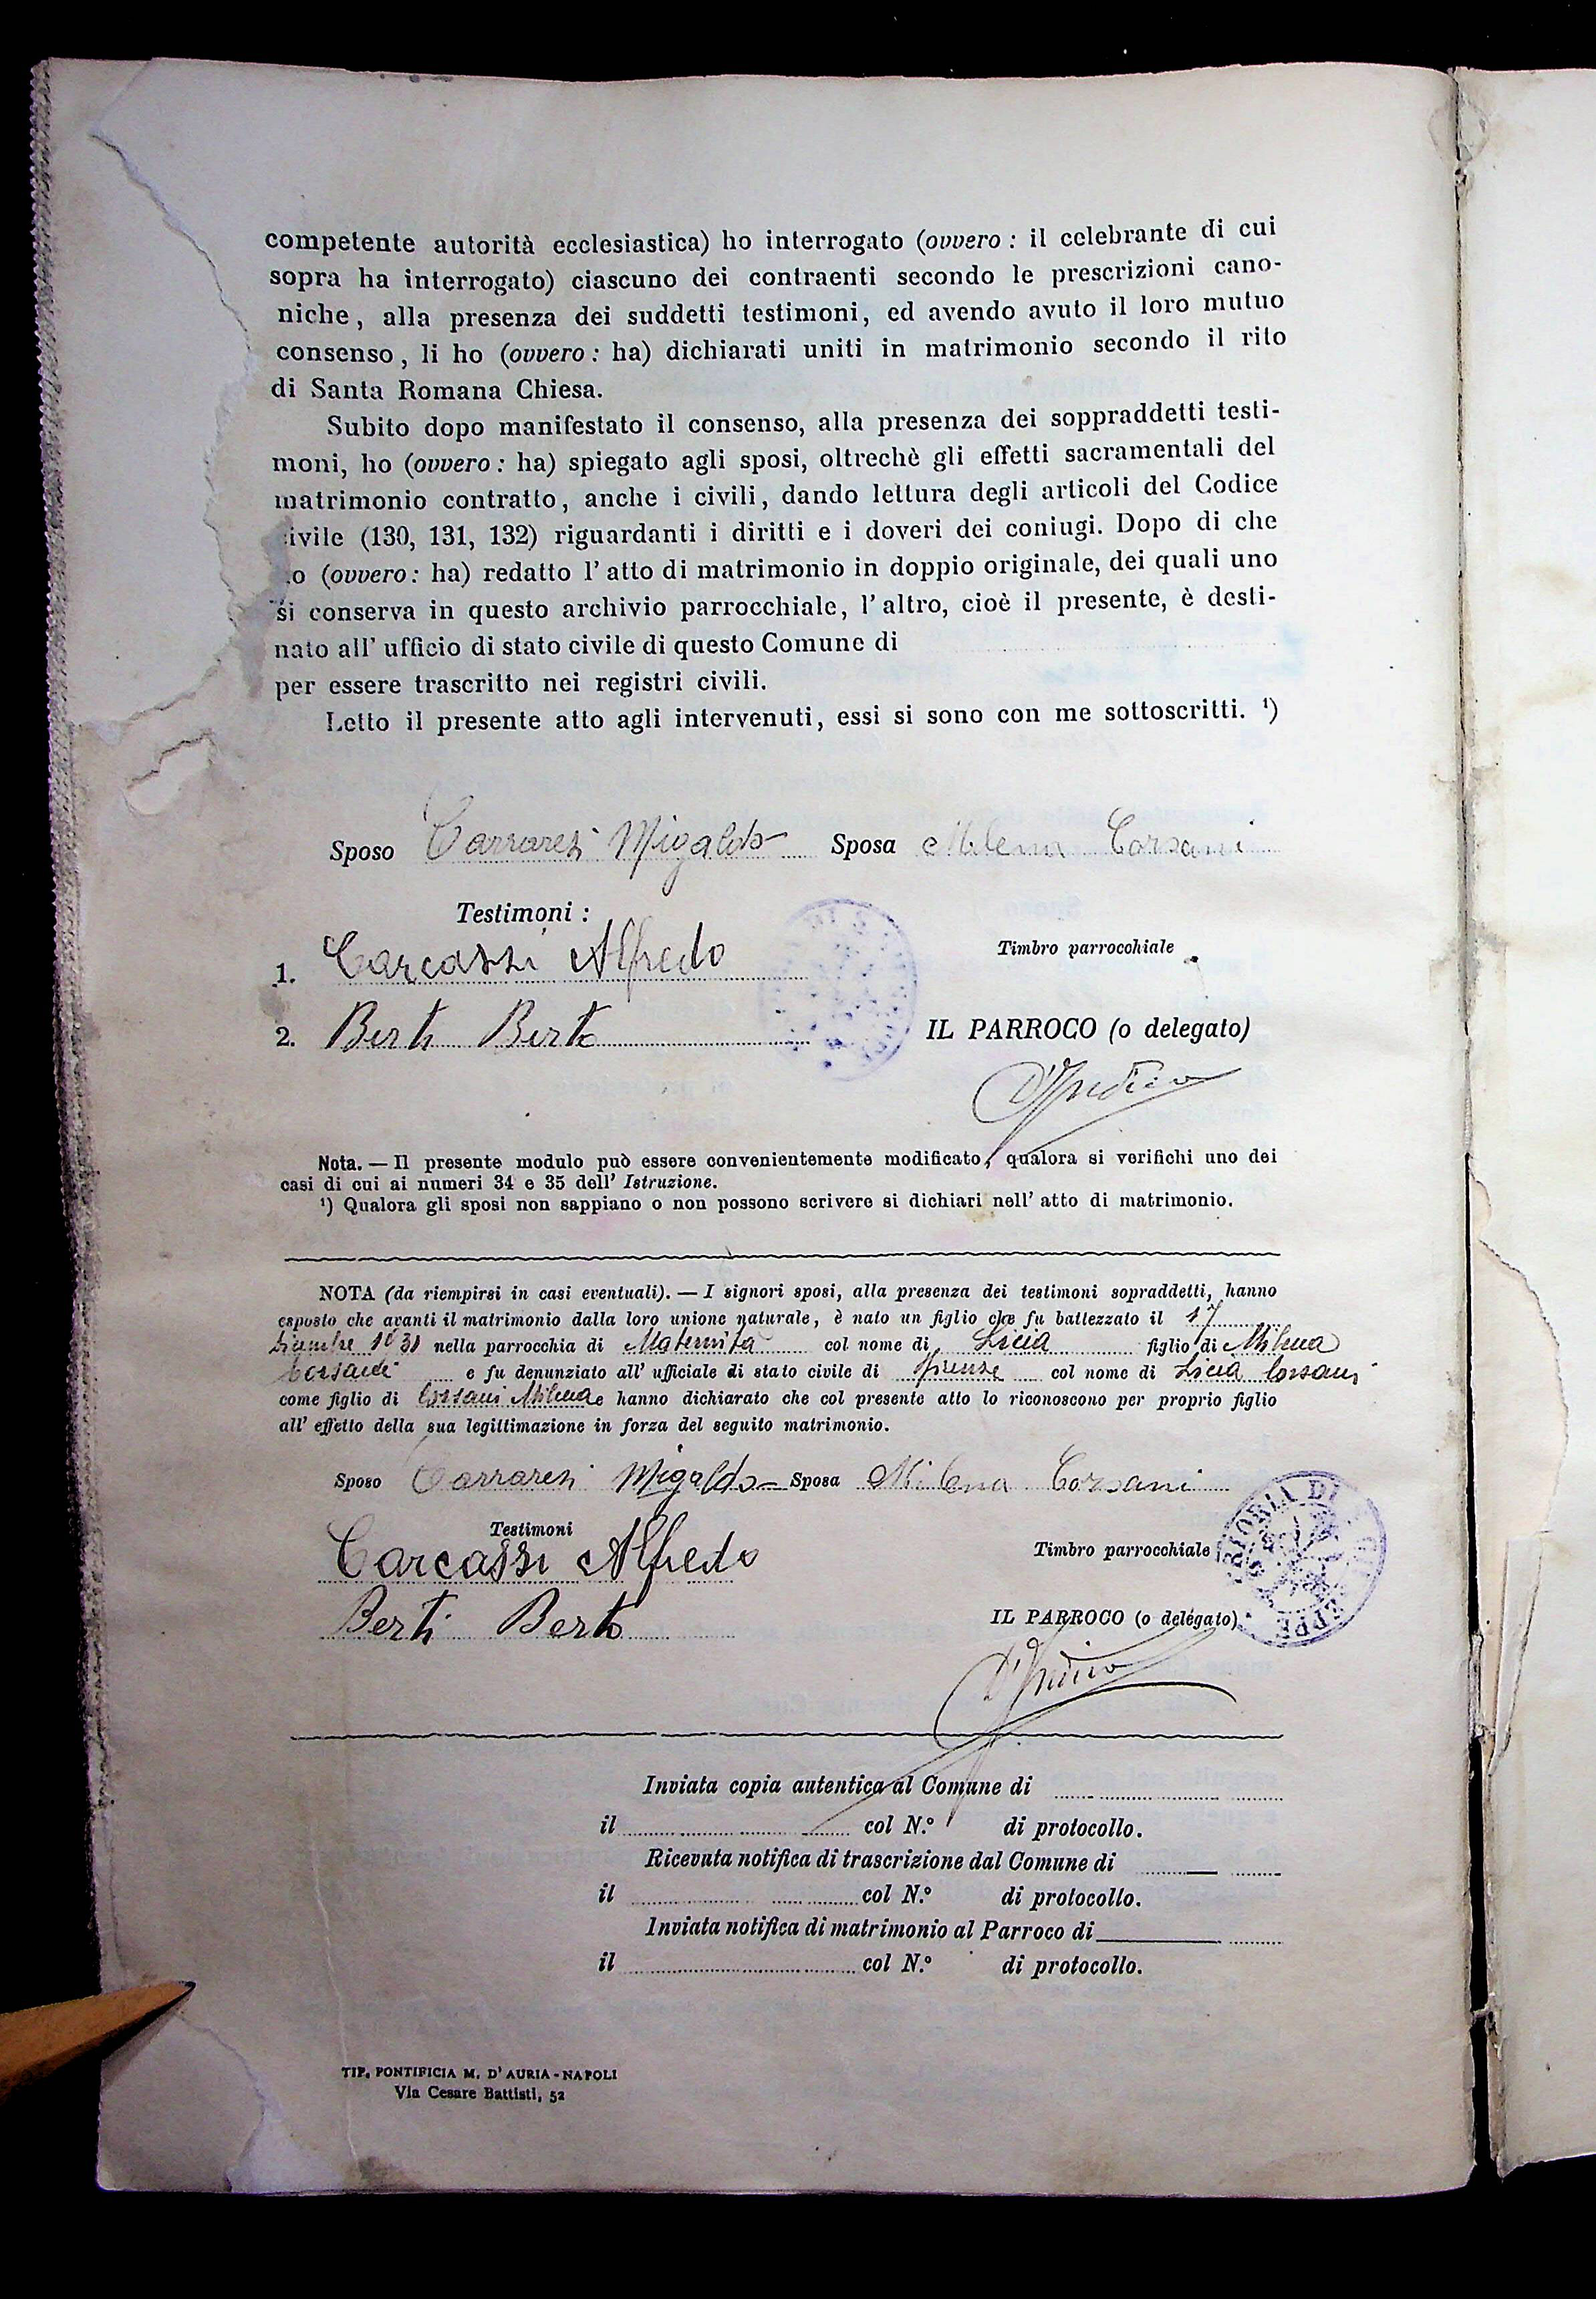 competente autorità ecclesiastica) ho interrogato (ovvero : il celebrante di cui
sopra ha interrogato) ciascuno dei contraenti secondo le prescrizioni cano-
niche, alla presenza dei suddetti testimoni, ed avendo avuto il loro mutuo
consenso, li ho (ovvero : ha) dichiarati uniti in matrimonio secondo il rito
di Santa Romana Chiesa.
Subito dopo manifestato il consenso, alla presenza dei soppraddetti testi-
moni, ho (ovvero : ha) spiegato agli sposi, oltrechè gli effetti sacramentali del
matrimonio contratto, anche i civili, dando lettura degli articoli del Codice
ivile (130, 131, 132) riguardanti i diritti e i doveri dei coniugi. Dopo di che
o (ovvero : ha) redatto l' atto di matrimonio in doppio originale, dei quali uno
si conserva in questo archivio parrocchiale, l' altro, cioè il presente, è desti-
nato all' ufficio di stato civile di questo Comune di
per essere trascritto nei registri civili.
Letto il presente atto agli intervenuti, essi si sono con me sottoscritti. ¹)
Sposo Carraresi Migaldo Sposa Milena Corsani
Testimoni :
Timbro parrocchiale
1. Carcassi Alfredo
2. Berti Berto IL PARROCO (o delegato)
Nota. — Il presente modulo può essere convenientemente modificato, qualora si verifichi uno dei
casi di cui ai numeri 34 e 35 dell' Istruzione.
¹) Qualora gli sposi non sappiano o non possono scrivere si dichiari nell' atto di matrimonio.
NOTA (da riempirsi in casi eventuali). — I signori sposi, alla presenza dei testimoni sopraddetti, hanno
esposto che avanti il matrimonio dalla loro unione naturale, è nato un figlio che fu battezzato il 17
Dicembre 1931 nella parrocchia di Maternità col nome di Licia figlio di Milena
Corsani e fu denunziato all' ufficiale di stato civile di Firenze col nome di Licia Corsani
come figlio di Corsani Milena e hanno dichiarato che col presente atto lo riconoscono per proprio figlio
all' effetto della sua legittimazione in forza del seguito matrimonio.
Sposo Carraresi Migaldo Sposa Milena Corsani
Testimoni
Carcassi Alfredo
Timbro parrocchiale
PRIORIA DI
Berti Berto
IL PARROCO (o delegato)
Inviata copia autentica al Comune di
il col N.° di protocollo.
Ricevuta notifica di trascrizione dal Comune di
il col N.° di protocollo.
Inviata notifica di matrimonio al Parroco di
il col N.° di protocollo.
TIP. PONTIFICIA M. D' AURIA - NAPOLI
Via Cesare Battisti, 52